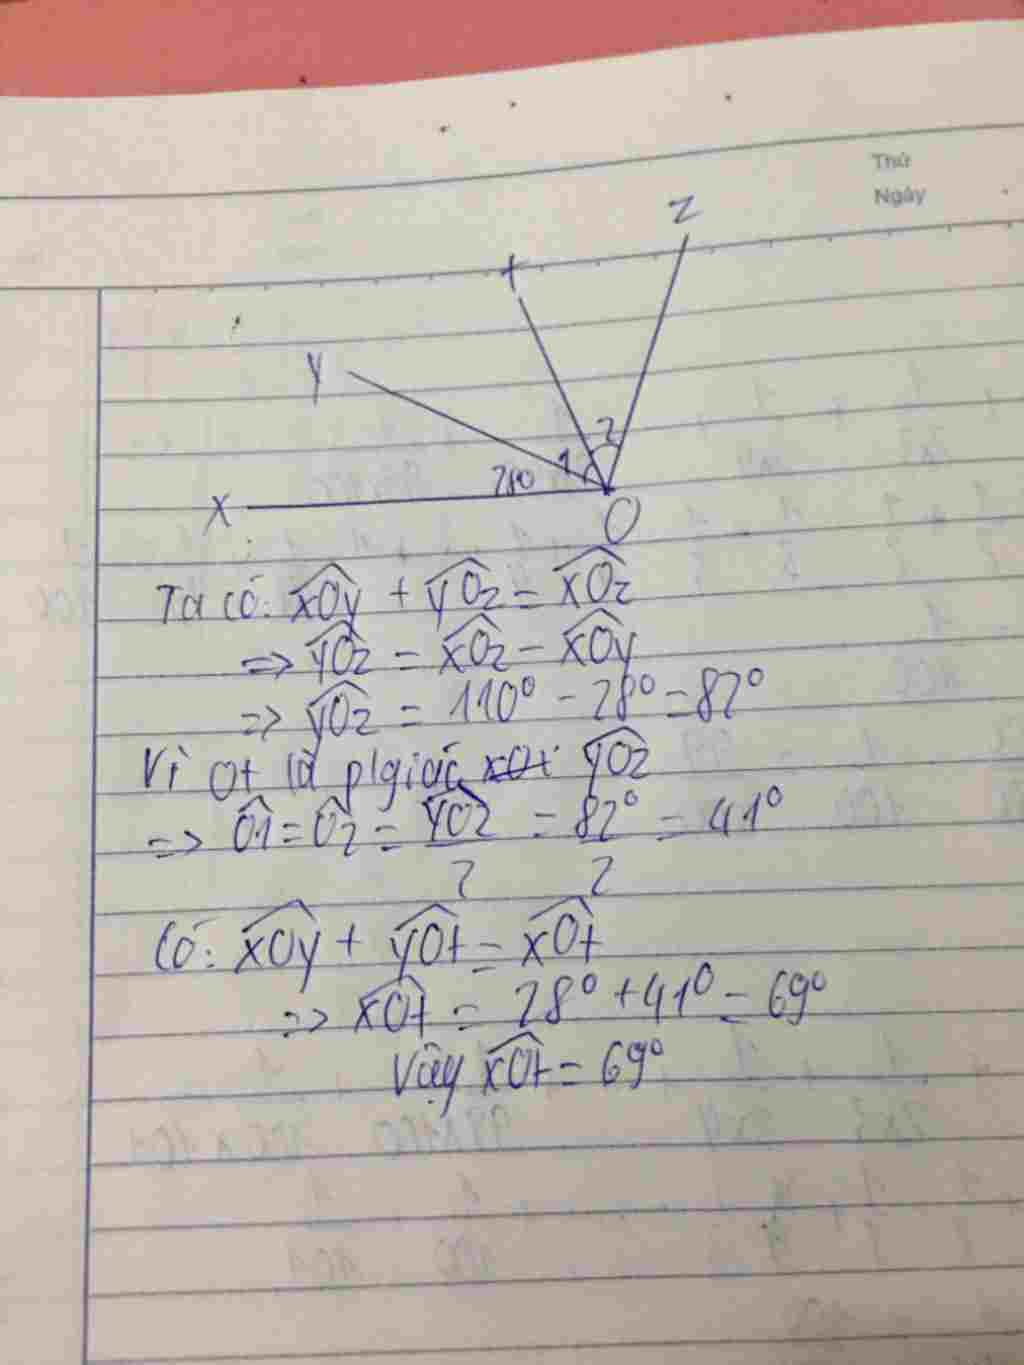 Thứ
Ngày
z
t
y
2
1
28°
x
O
Ta có: xOy + yOz = xOz
=> yOz = xOz - xOy
=> yOz = 110° - 28° = 82°
Vì Ot là p/giác yOz
=> O1 = O2 = yOz/2 = 82°/2 = 41°
Có: xOy + yOt = xOt
=> xOt = 28° + 41° = 69°
Vậy xOt = 69°